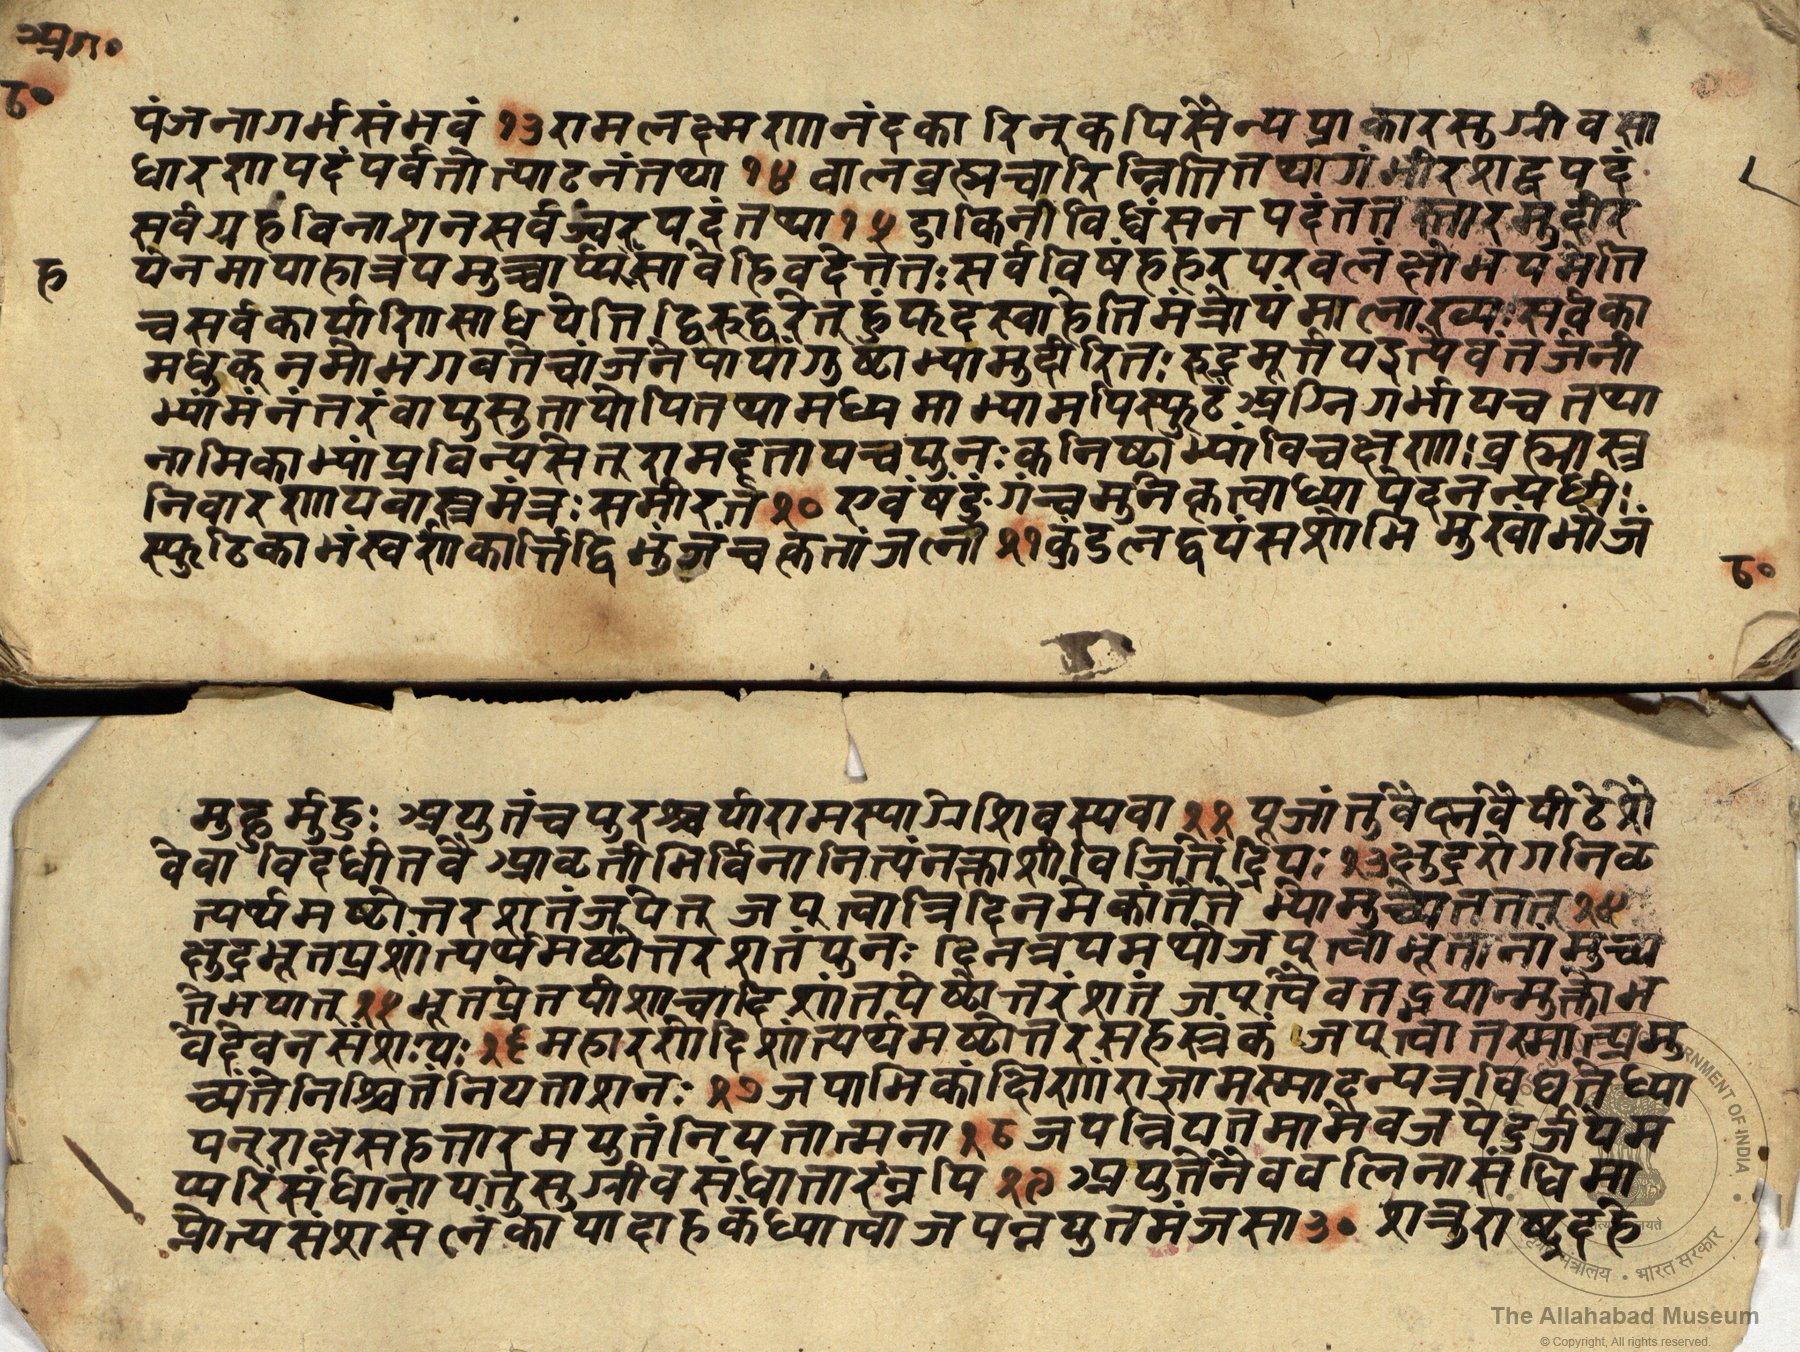 अग॰
८०
पंजनागर्भसंभवं १३ रामलक्ष्मणानंदकारिन्कपिसैन्यप्राकारसुग्रीवसा
धारणपदंपर्वतोत्पाटनंतथा १४ वालब्रह्मचारिन्नितितथागंभीरशद्वपदं
सर्वग्रहविनाशनसर्वज्वरपदंतथा १५ डाकिनीविध्वंसनपदंततस्तारमुदीर
ह
सर्वविषंहरपरवलंक्षोभयमेति
चसर्वकार्याणिसाधयेतिद्विरुद्वरेत् हुंफट्स्वाहेतिमंत्रोयंमालाख्यःसर्वका
नमोभगवतेचांजनेयायांगुष्ठाभ्यामुदीरितःरुद्रमूर्त्तयइत्येवंतर्जनी
भ्यांमंनंतरंवायुसुतायोपितथामध्यमाभ्यामपिस्फुटंअग्निगर्भायचतथा
नामिकाभ्यांप्रविन्यसेत् रामदूतायचपुनःकनिष्ठाभ्यांविचक्षणः।ब्रह्मास्त्र
निवारणायवास्त्रमंत्रःसमीरते २० एवंषडंगंचमुनिकृत्वाध्यायेदनन्यधीः
स्फटिकाभंस्वर्णकांर्त्तिद्विभुजंचकृतांजली २१ कुंडलद्वयंसशोभिमुखांभोजं
८०
मुहुर्मुहुः अयुतंचपुरश्चर्यारामस्याग्रेशिवस्यवा २२ पूजांतुवैष्नवेपीठेशै
वेवाविदधीतवै
क्षुद्ररोगनिवृ
त्यर्थमष्टोत्तरशतंजपेत् जप्त्वात्रिदिनमेकांते
२४
क्षुद्रभूतप्रशांत्यर्थमष्टोत्तरशतंपुनः दिनत्रयमथोजप्त्वाभूतानांमुच्य
तेभयात् २५ भूतप्रेतपीशाचादिशांतयेष्टोत्तरंशतं जप्त्वैवतद्भयान्मुक्तोभ
वेदेवनसंशःयः २६ महारणादिशांत्यर्थमष्टोत्तरसहस्त्रकं जप्त्वातस्मात्प्रमु
च्यंतेनिश्चितंनियताशनः २७ जयाभिकांक्षिणांराज्ञामस्मादन्यन्नविद्यतेध्या
यन्राक्षसहत्तारमयुतंनियतात्मना २८ जपन्नियतमामेवजयेद्दुर्जयम
प्यरिंसंधानायतुसुग्रीवसंधातारंत्रपि २९ अयुतेनैववलिनासंधिमा
प्नोत्यसंशसंलंकायादाहकंध्यात्वाजपन्नयुतमंजसा ३० शत्रुराष्ट्रदहे
The Allahabad Museum
© Copyright, All rights reserved.